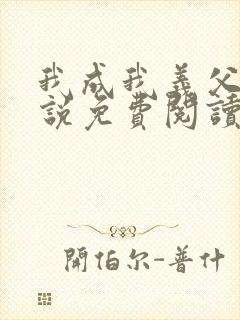 我成我義父
說免費閱讀
開伯尔-普什